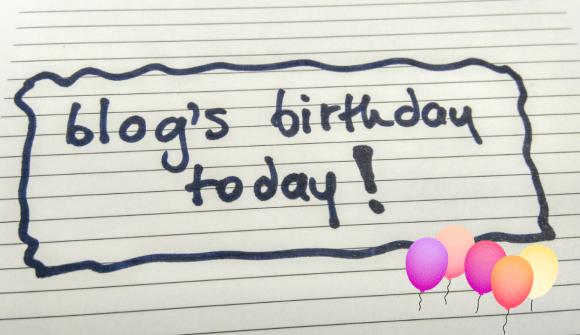 blog's birthday
today!